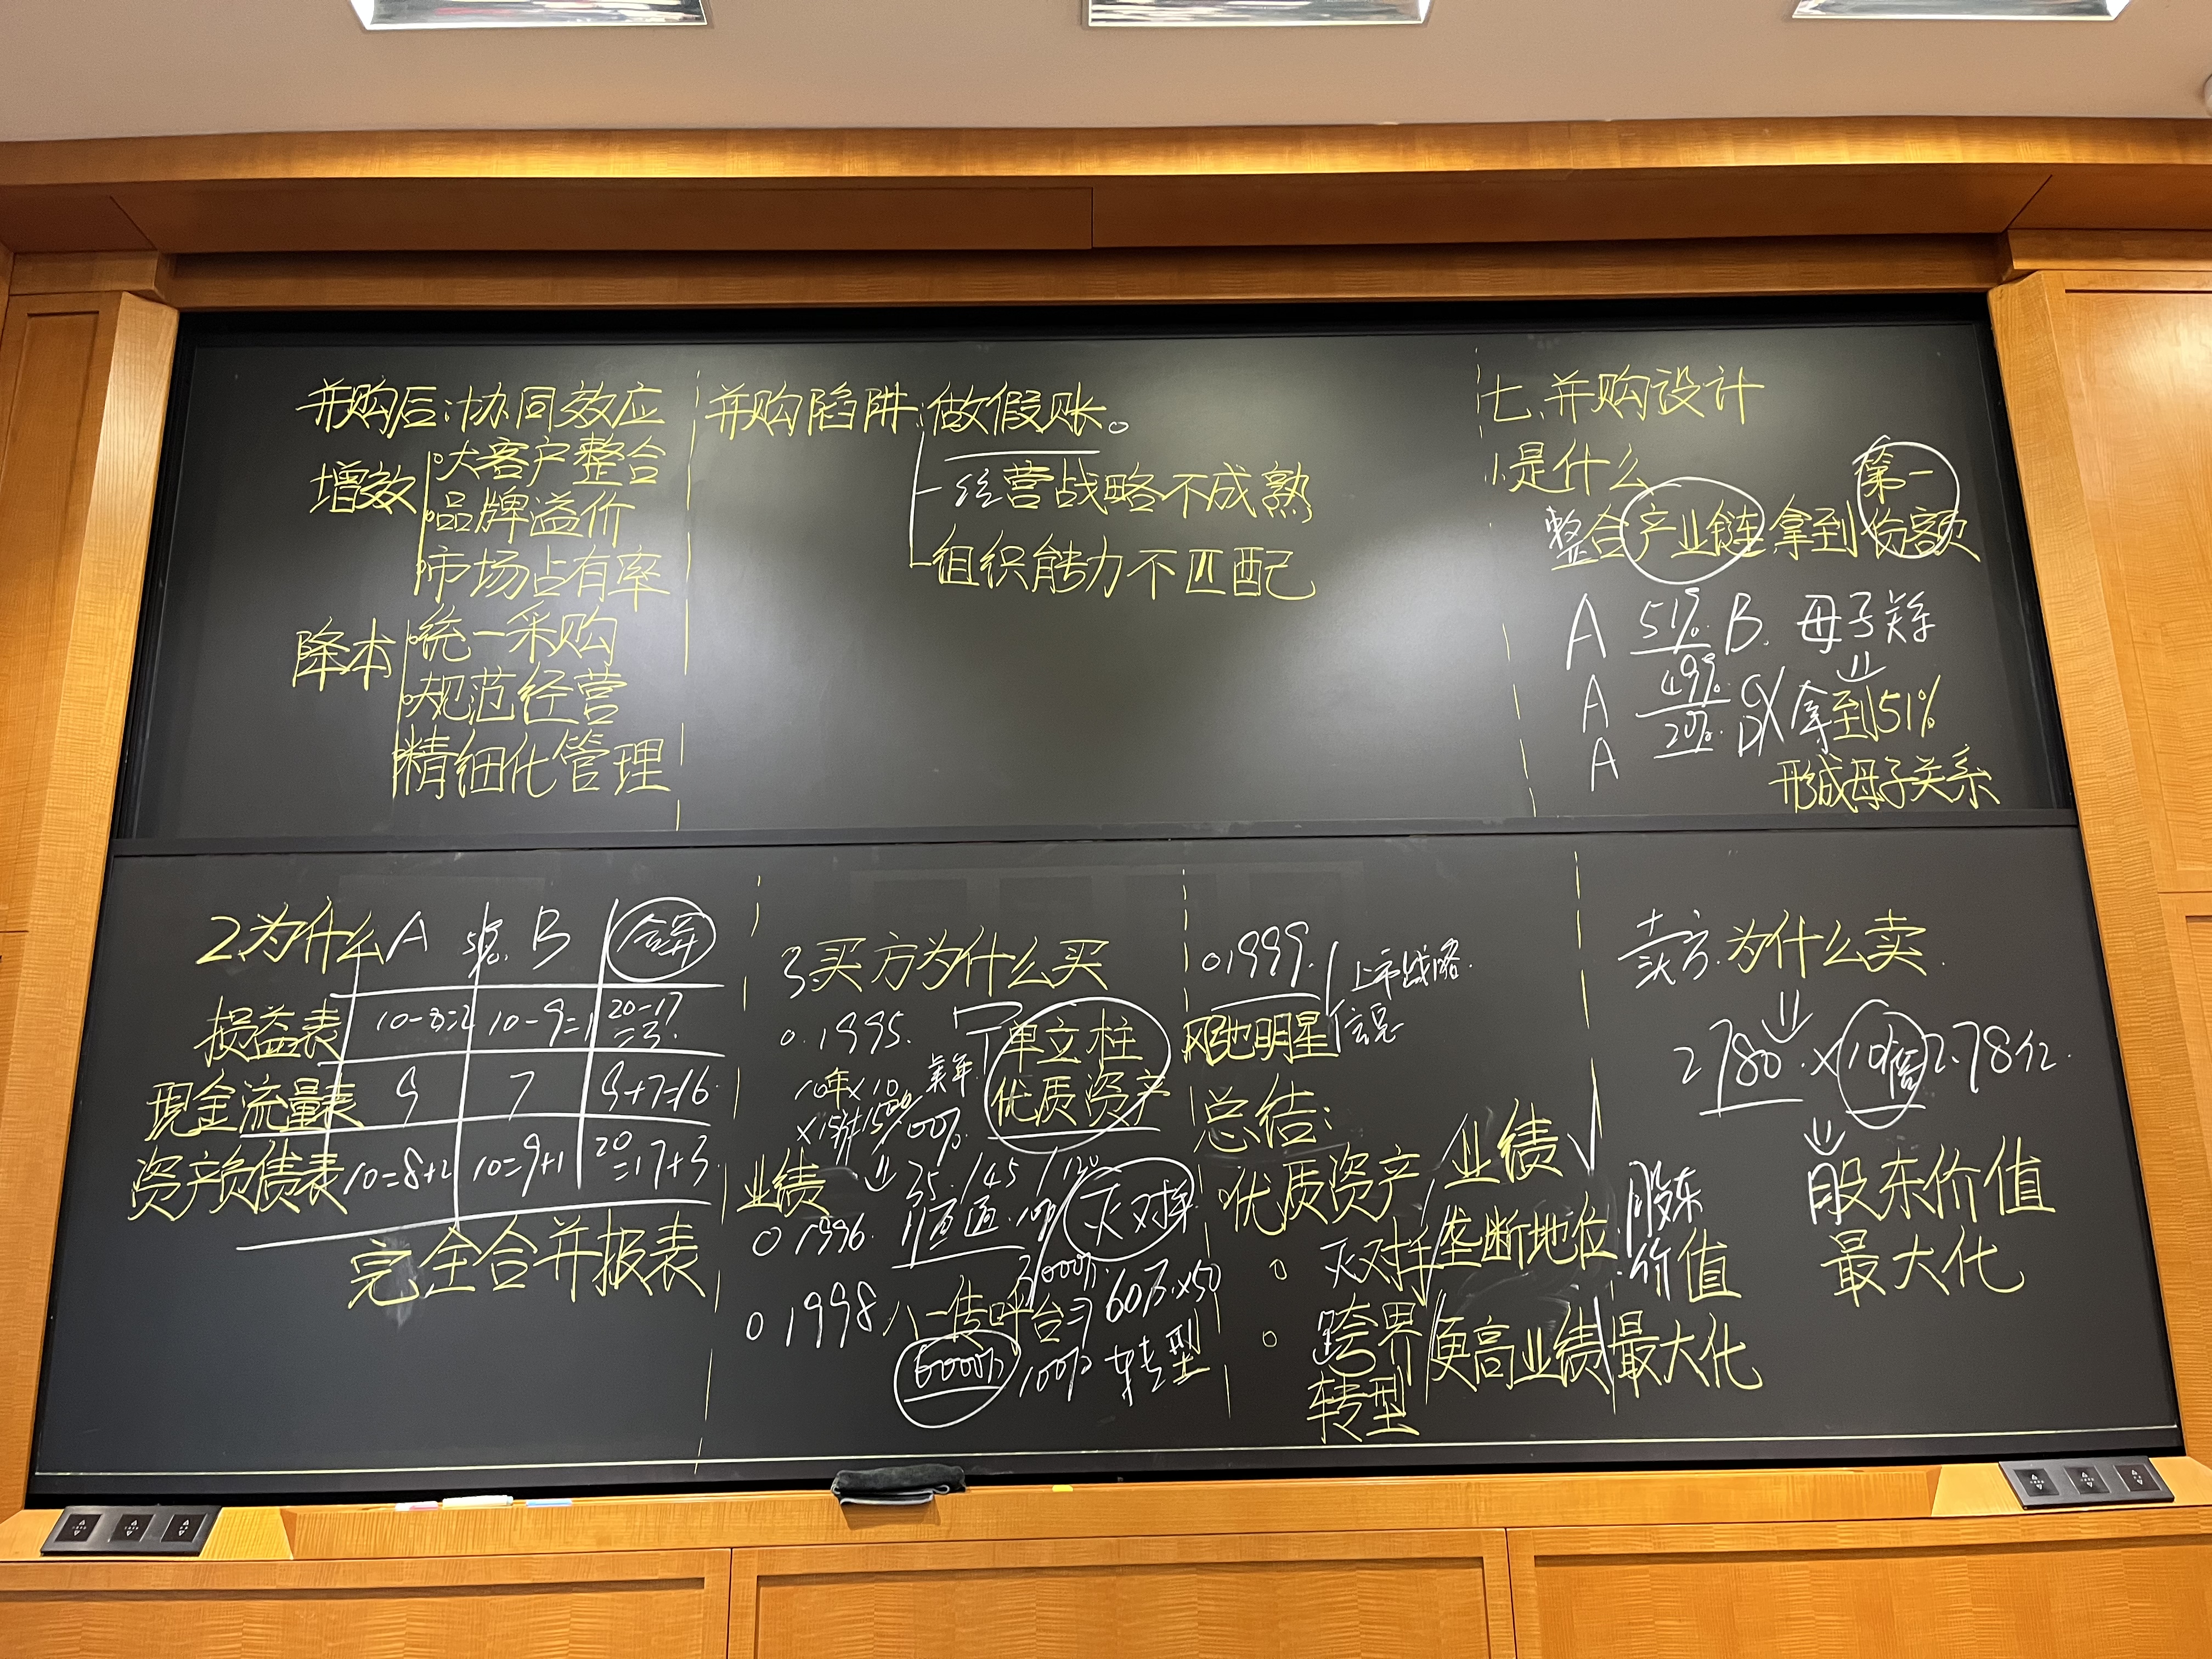 并购后:协同效应
增效
大客户整合
品牌溢价
市场占有率
降本
统一采购
规范经营
精细化管理
并购陷阱:做假账。
经营战略不成熟
组织能力不匹配
七.并购设计
1.是什么
第一
整合产业链拿到份额
A 51% B. 母子关系
A 49% C 拿到51%
A 20% D
形成母子关系
2.为什么 A 51% B 合并
损益表 10-8=2 10-9=1 20-17=3
现金流量表 9 7 9+7=16
资产负债表 10=8+2 10=9+1 20=17+3
完全合并报表
3.买方为什么买
1995. 单立柱
10年×10
优质资产
100%
业绩
35 /45
1996. 灭对手
1998 八一传呼台 60万×50
6000万 100% 转型
1999. 上市战略
总结:
优质资产 业绩
灭对手 垄断地位 股东
价值
跨界 更高业绩 最大化
转型
卖方.为什么卖
2780×10倍 2.78亿
股东价值
最大化